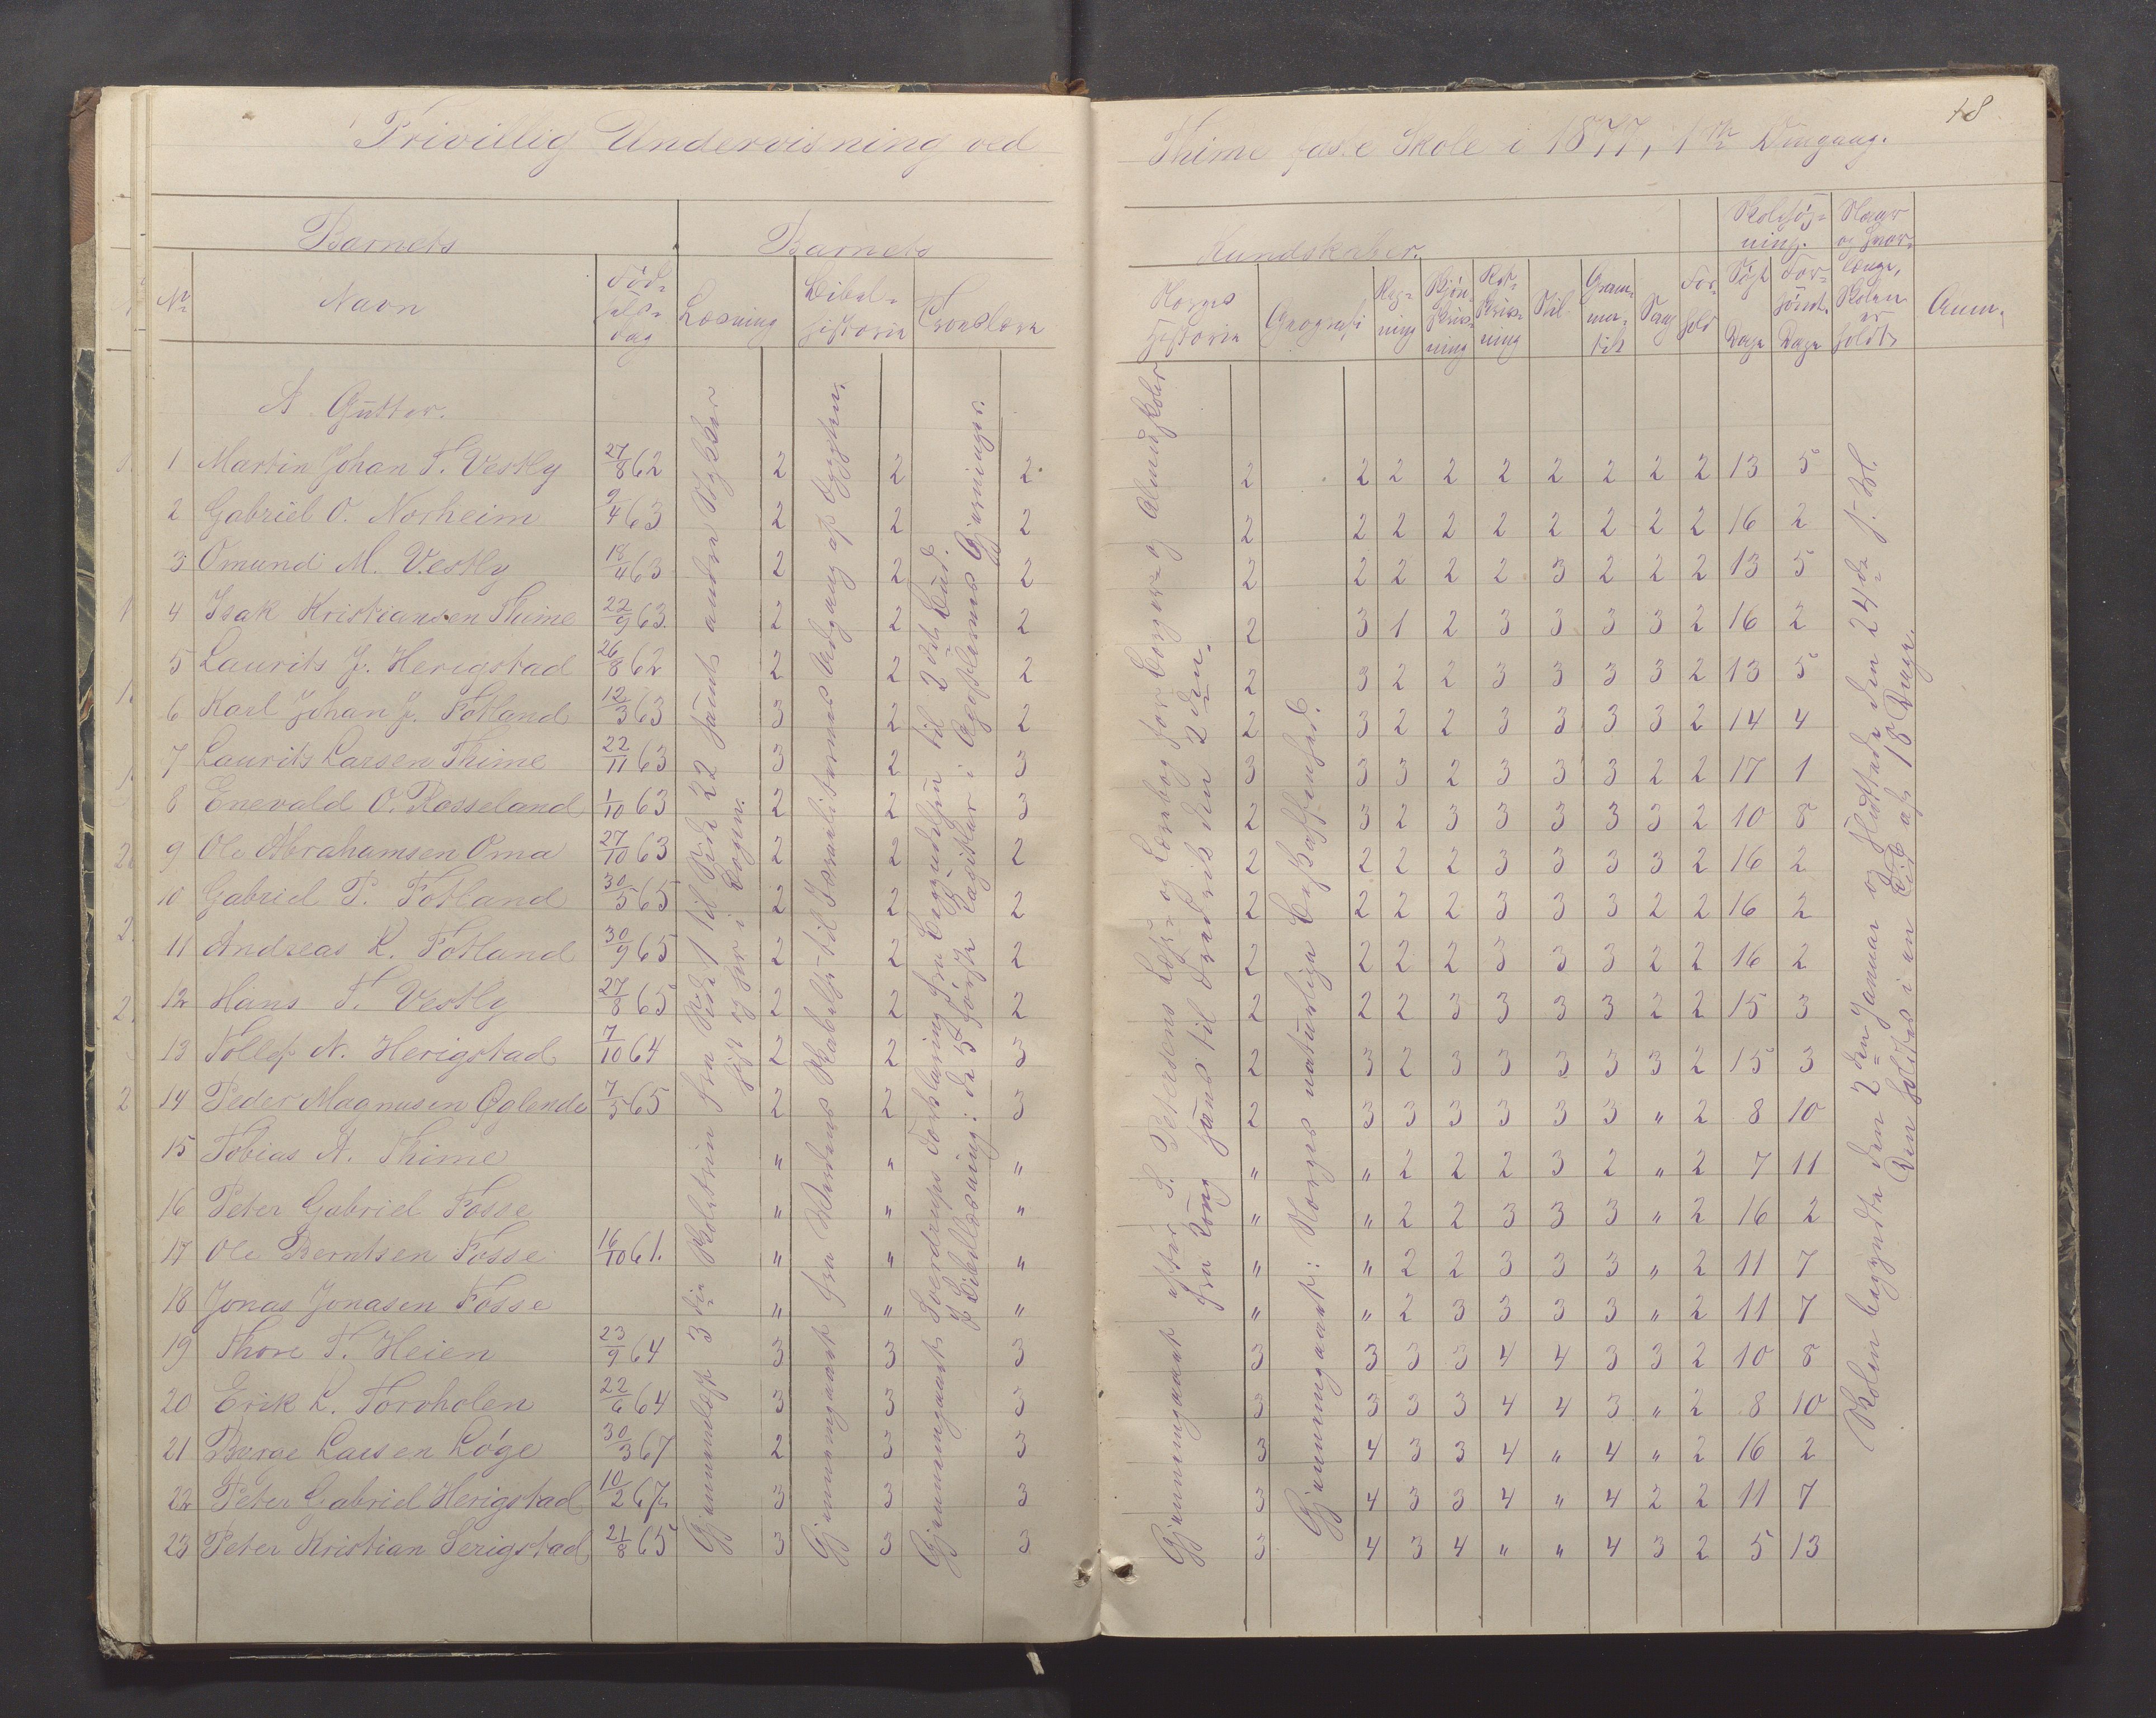 48
Frivillig Undervisning ved Thime faste Skole i 1877, 1ste Omgang.
Barnets
Barnets Kundskaber.
Skolesøgning.
Naar og hvorlænge, Skolen er holdt.
Anm.
No
Navn
Fødselsdag
Læsning
Bibelhistorie
Troeslære
Norges Historie
Geografi
Regning
Skjønskrivning
Retskrivning
Stil
Grammatik
Sang
Forhold
Søgt Dage
Forsömt. Dage
A Gutter.
1 Martin Johan T. Vestly 27/8 62 2 2 2 2 2 2 2 2 2 2 2 2 13 5
2 Gabriel O. Norheim 9/4 63 2 2 2 2 2 2 2 2 2 2 2 2 16 2
3 Omund M. Vestly 18/4 63 2 2 2 2 2 2 2 2 3 2 2 2 13 5
4 Isak Kristiansen Thime 22/9 63 2 2 2 2 3 1 2 3 3 3 3 2 16 2
5 Laurits J. Herigstad 26/8 62 2 2 2 2 3 2 2 3 3 3 3 2 13 5
6 Karl Johan J. Fotland 12/3 63 3 2 2 2 3 2 2 3 3 3 3 2 14 4
7 Laurits Larsen Thime 22/11 63 3 2 3 3 3 3 2 3 3 3 2 2 17 1
8 Enevald O. Rosseland 1/10 63 2 2 3 2 3 2 3 3 3 3 3 2 10 8
9 Ole Abrahamsen Oma 27/10 63 2 2 2 2 2 2 2 3 3 3 3 2 16 2
10 Gabriel P. Fotland 30/5 65 2 2 2 2 2 2 2 3 3 3 2 2 16 2
11 Andreas K. Fotland 30/9 65 2 2 2 2 2 2 2 3 3 3 2 2 16 2
12 Hans T. Vestly 27/8 65 2 2 2 2 2 2 3 3 3 3 2 2 15 3
13 Tollef N. Herigstad 7/10 64 2 2 3 2 3 2 3 3 3 3 3 2 15 3
14 Peder Magnusen Øglende 7/5 65 2 2 3 2 3 3 3 3 3 3 " 2 8 10
15 Tobias A. Thime " " " " " 2 2 2 3 2 " 2 7 11
16 Peter Gabriel Fosse " " " " " 2 2 3 3 3 " 2 16 2
17 Ole Berntsen Fosse 16/10 61. " " " " " 2 2 3 3 3 " 2 11 7
18 Jonas Jonasen Fosse " " " " " 2 3 3 3 3 " 2 11 7
19 Thore T. Heien 23/9 64 3 3 3 3 3 3 3 4 4 3 3 2 10 8
20 Erik L. Torvholen 22/6 64 3 3 3 3 3 3 3 4 4 3 " 2 8 10
21 Børge Larsen Løge 30/3 67 2 3 3 3 4 3 3 4 " 4 " 2 16 2
22 Peter Gabriel Herigstad 10/2 67 3 3 3 3 4 3 3 4 " 4 2 2 11 7
23 Peter Kristian Serigstad 21/8 65 3 3 3 3 4 3 4 " " 4 3 2 5 13
Gjennemløst 3die Skoletrin fra Side 1 til Side 22 samt andre Stykker
hist og her i Bogen.
Gjennemgaaet fra Verdens Skabelse til Israeliternes Udgang af Egypten.
Gjennemgaaet Sverdrups Forklaring fra Begyndelsen til 2det Bud.
I Bibellæsning: de 5 første Kapitler i Apostlernes Gjerninger.
Gjennemgaaet efter S. Petersens Læse- og Lærebog for Borger- og Almueskoler
fra Kong Hans til Fredrik den 2den.
Gjennemgaaet: Norges naturlige Beskaffenhed.
Skolen begyndte den 2den Januar og sluttede den 24de s. M.
Den holdtes i en Tid af 18 Dage.